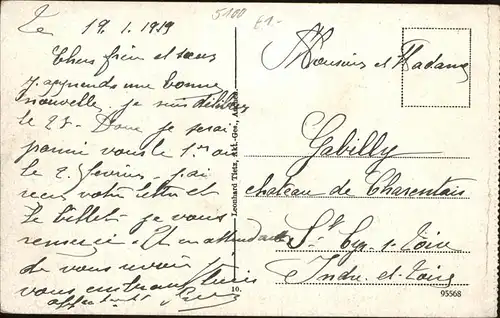 Le 19.1.1919
5100 €1-
Chers frère et sœur
j'apprends une bonne
nouvelle, je suis délibéré
le 25 - Donc je serai
parmi vous le 1er ou
le 2 février - j'ai
reçu votre lettre et
le billet - je vous
remercie - En attendant
de vous revoir
vous embrasse
Monsieur et Madame
Gabilly
chateau de Charentais
St Cyr-s-Loire
Indre-et-Loire
Leonhard Tietz, Akt.-Ges.,
10.
95568